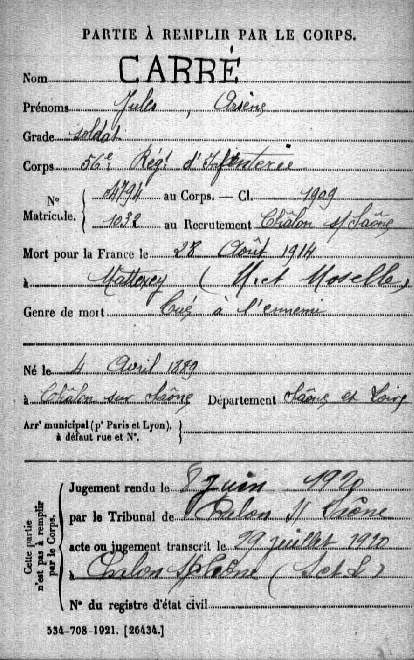 PARTIE À REMPLIR PAR LE CORPS.
Nom CARRÉ
Prénoms Jules, Arsène
Grade soldat
Corps 56e Régt d'Infanterie
N° Matricule. 4794 au Corps. — Cl. 1909
1032 au Recrutement Châlon s/ Saône
Mort pour la France le 28 Août 1914
à Mattexey (M. et Moselle)
Genre de mort Tué à l'ennemi
Né le 4 Avril 1889
à Châlon sur Saône Département Saône et Loire
Arrt municipal (pr Paris et Lyon), à défaut rue et N°.
Cette partie n'est pas à remplir par le Corps.
Jugement rendu le 8 juin 1920
par le Tribunal de S/ Saône
acte ou jugement transcrit le 29 juillet 1920
à S/ Saône (S et L)
N° du registre d'état civil
534-708-1921. [26434.]